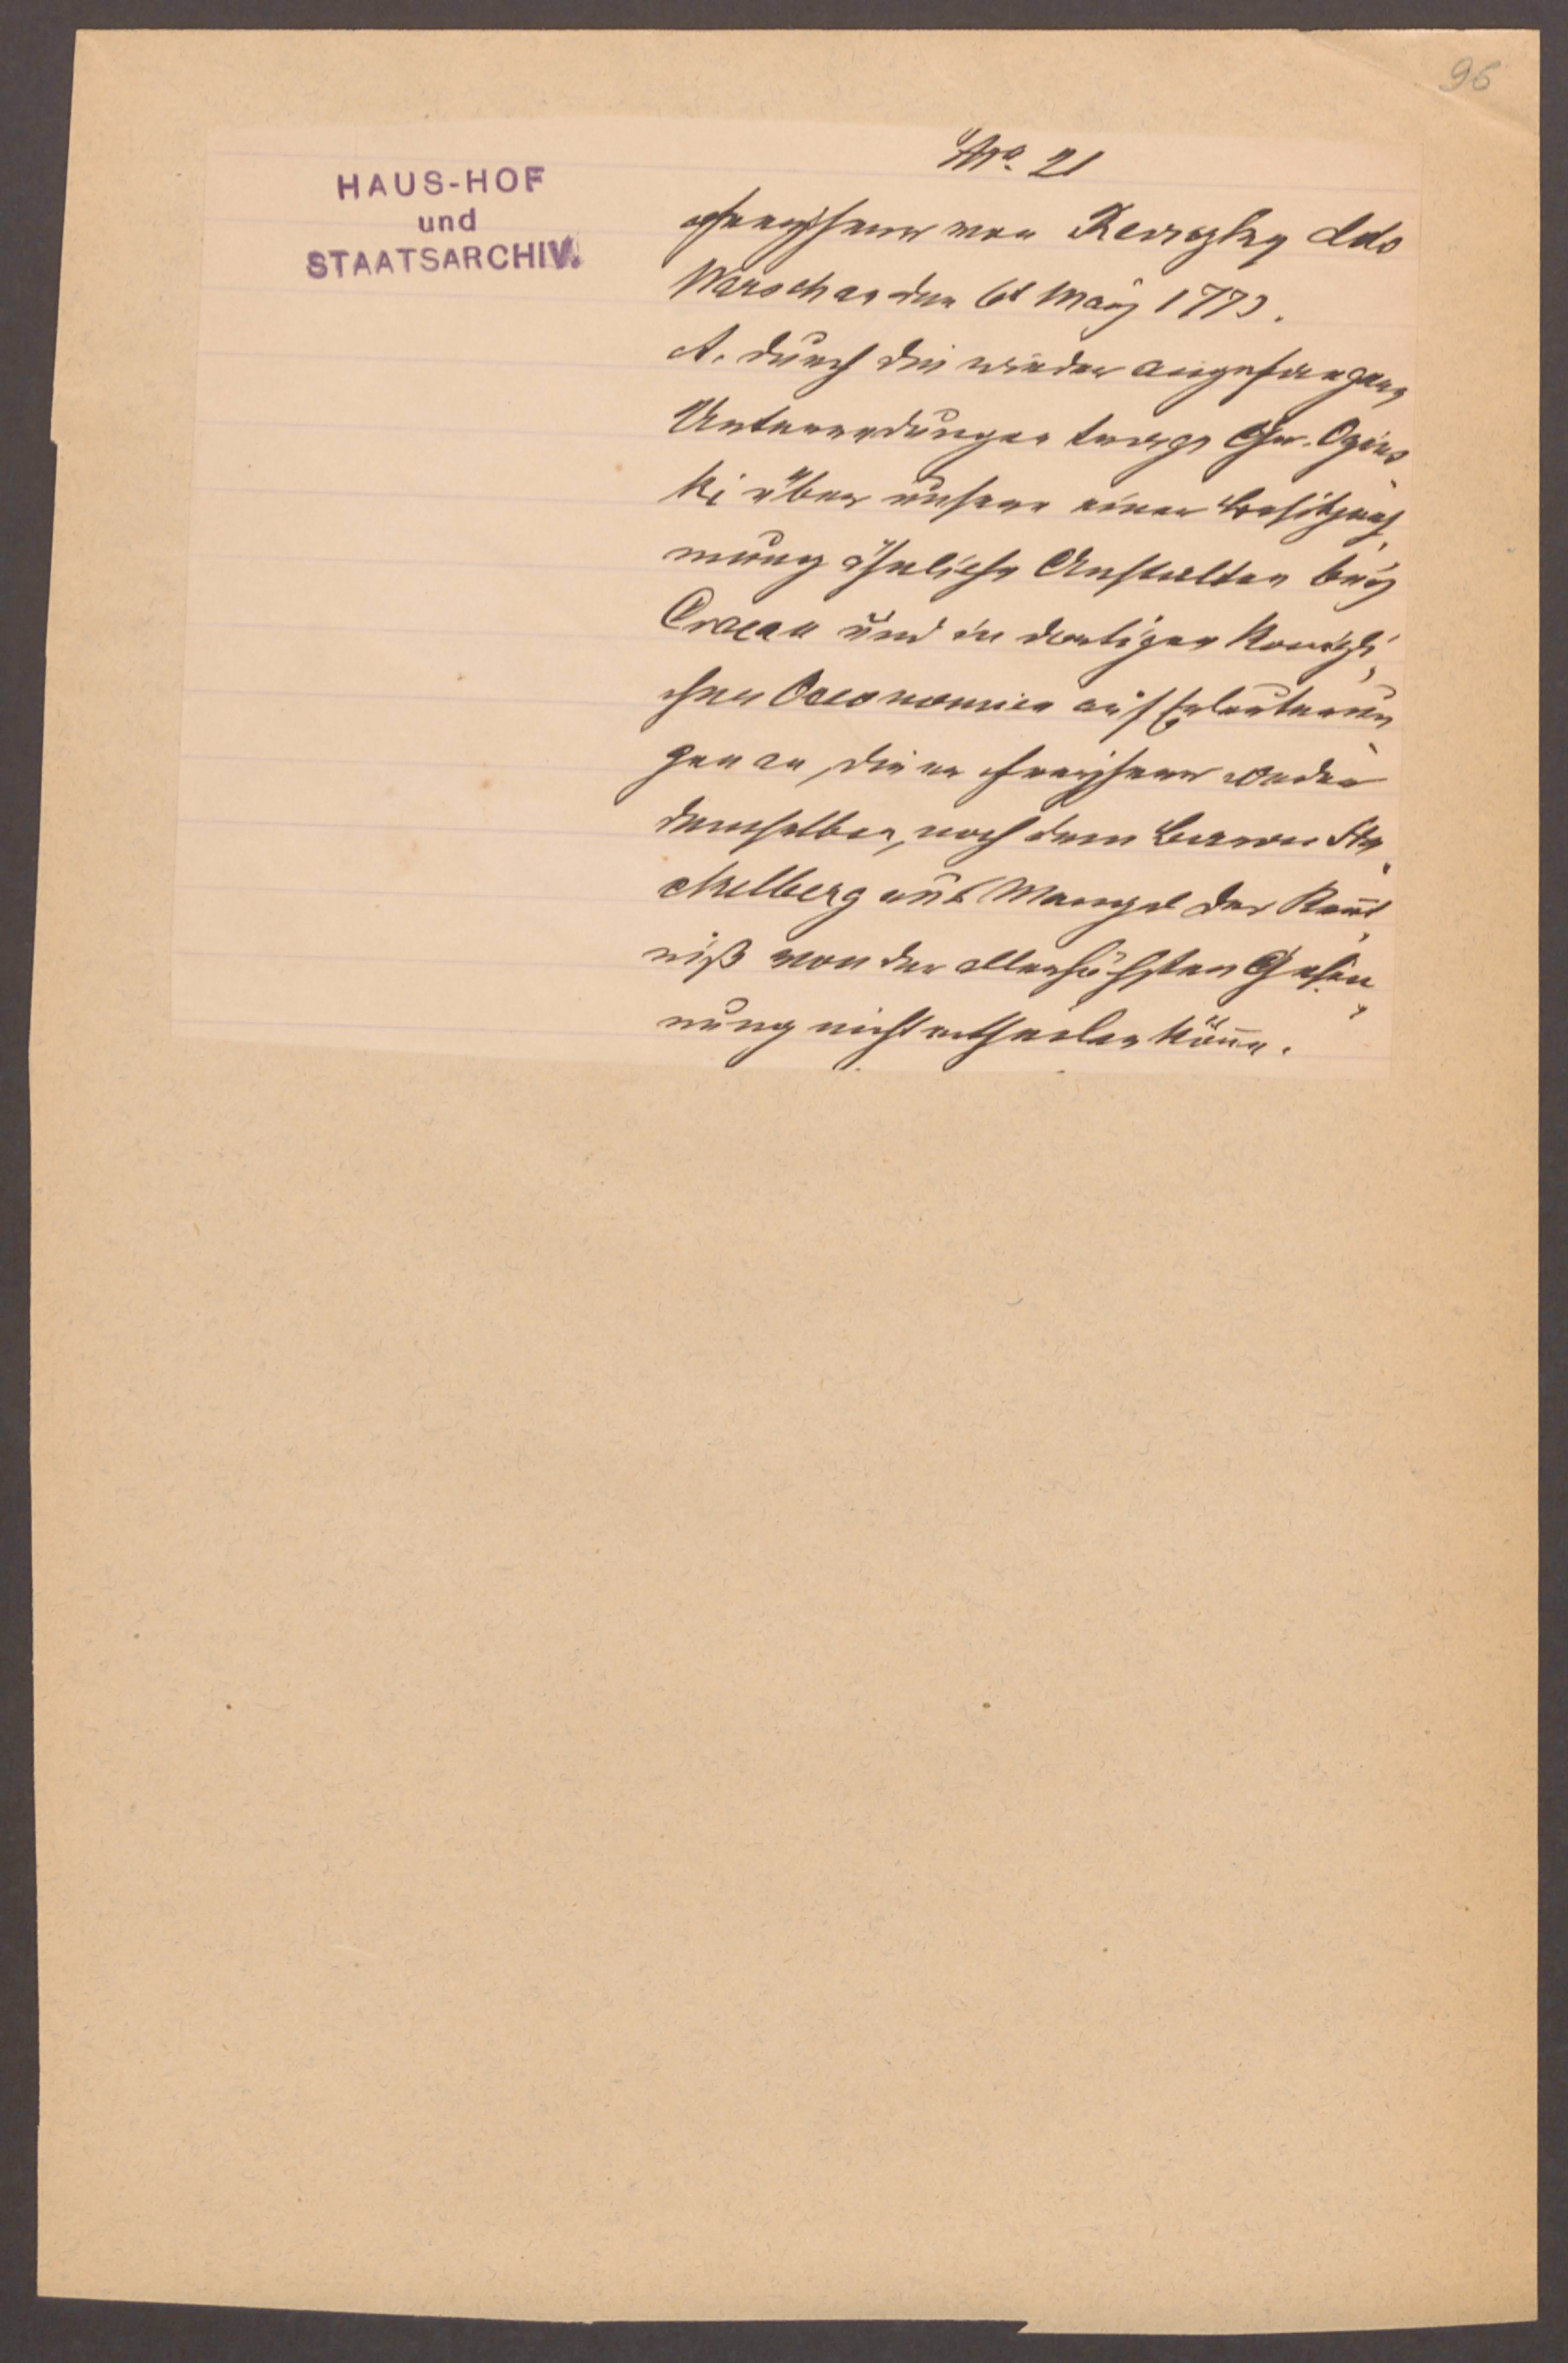 96
HAUS-HOF
und
STAATSARCHIV.
No. 21
Freyherr von Rewizky ddo
Warschau den 6t May 1773.
A. durch die wieder angefangene
Unterredungen trage Gr. Ogins
ki über unsere einer Besitzneh
mung ähnliche Anstalten bey
Cracau und in dortigen Königli,
chen Oeconomien auf Erläuterun
gen an, die er Freyherr weder
demselben, noch dem Baron Sta
ckelberg aus Mangel der Kennt
niß von der allerhöchsten Gesin
nung nicht ertheilen könne.